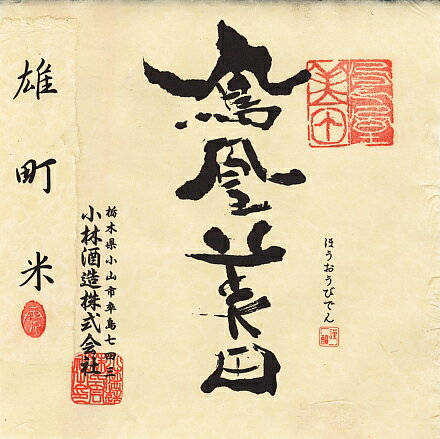 鳳凰
美田
ほうおうびでん
鳳凰美田
栃木県小山市卒島七四三
小林酒造株式会社
雄町米